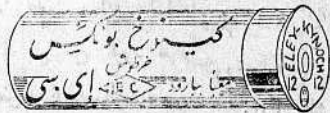 کینوخ بونکس
خرطوش
معبا بارود <E.C> إی سی
ELEY-KYNOCH
12 12